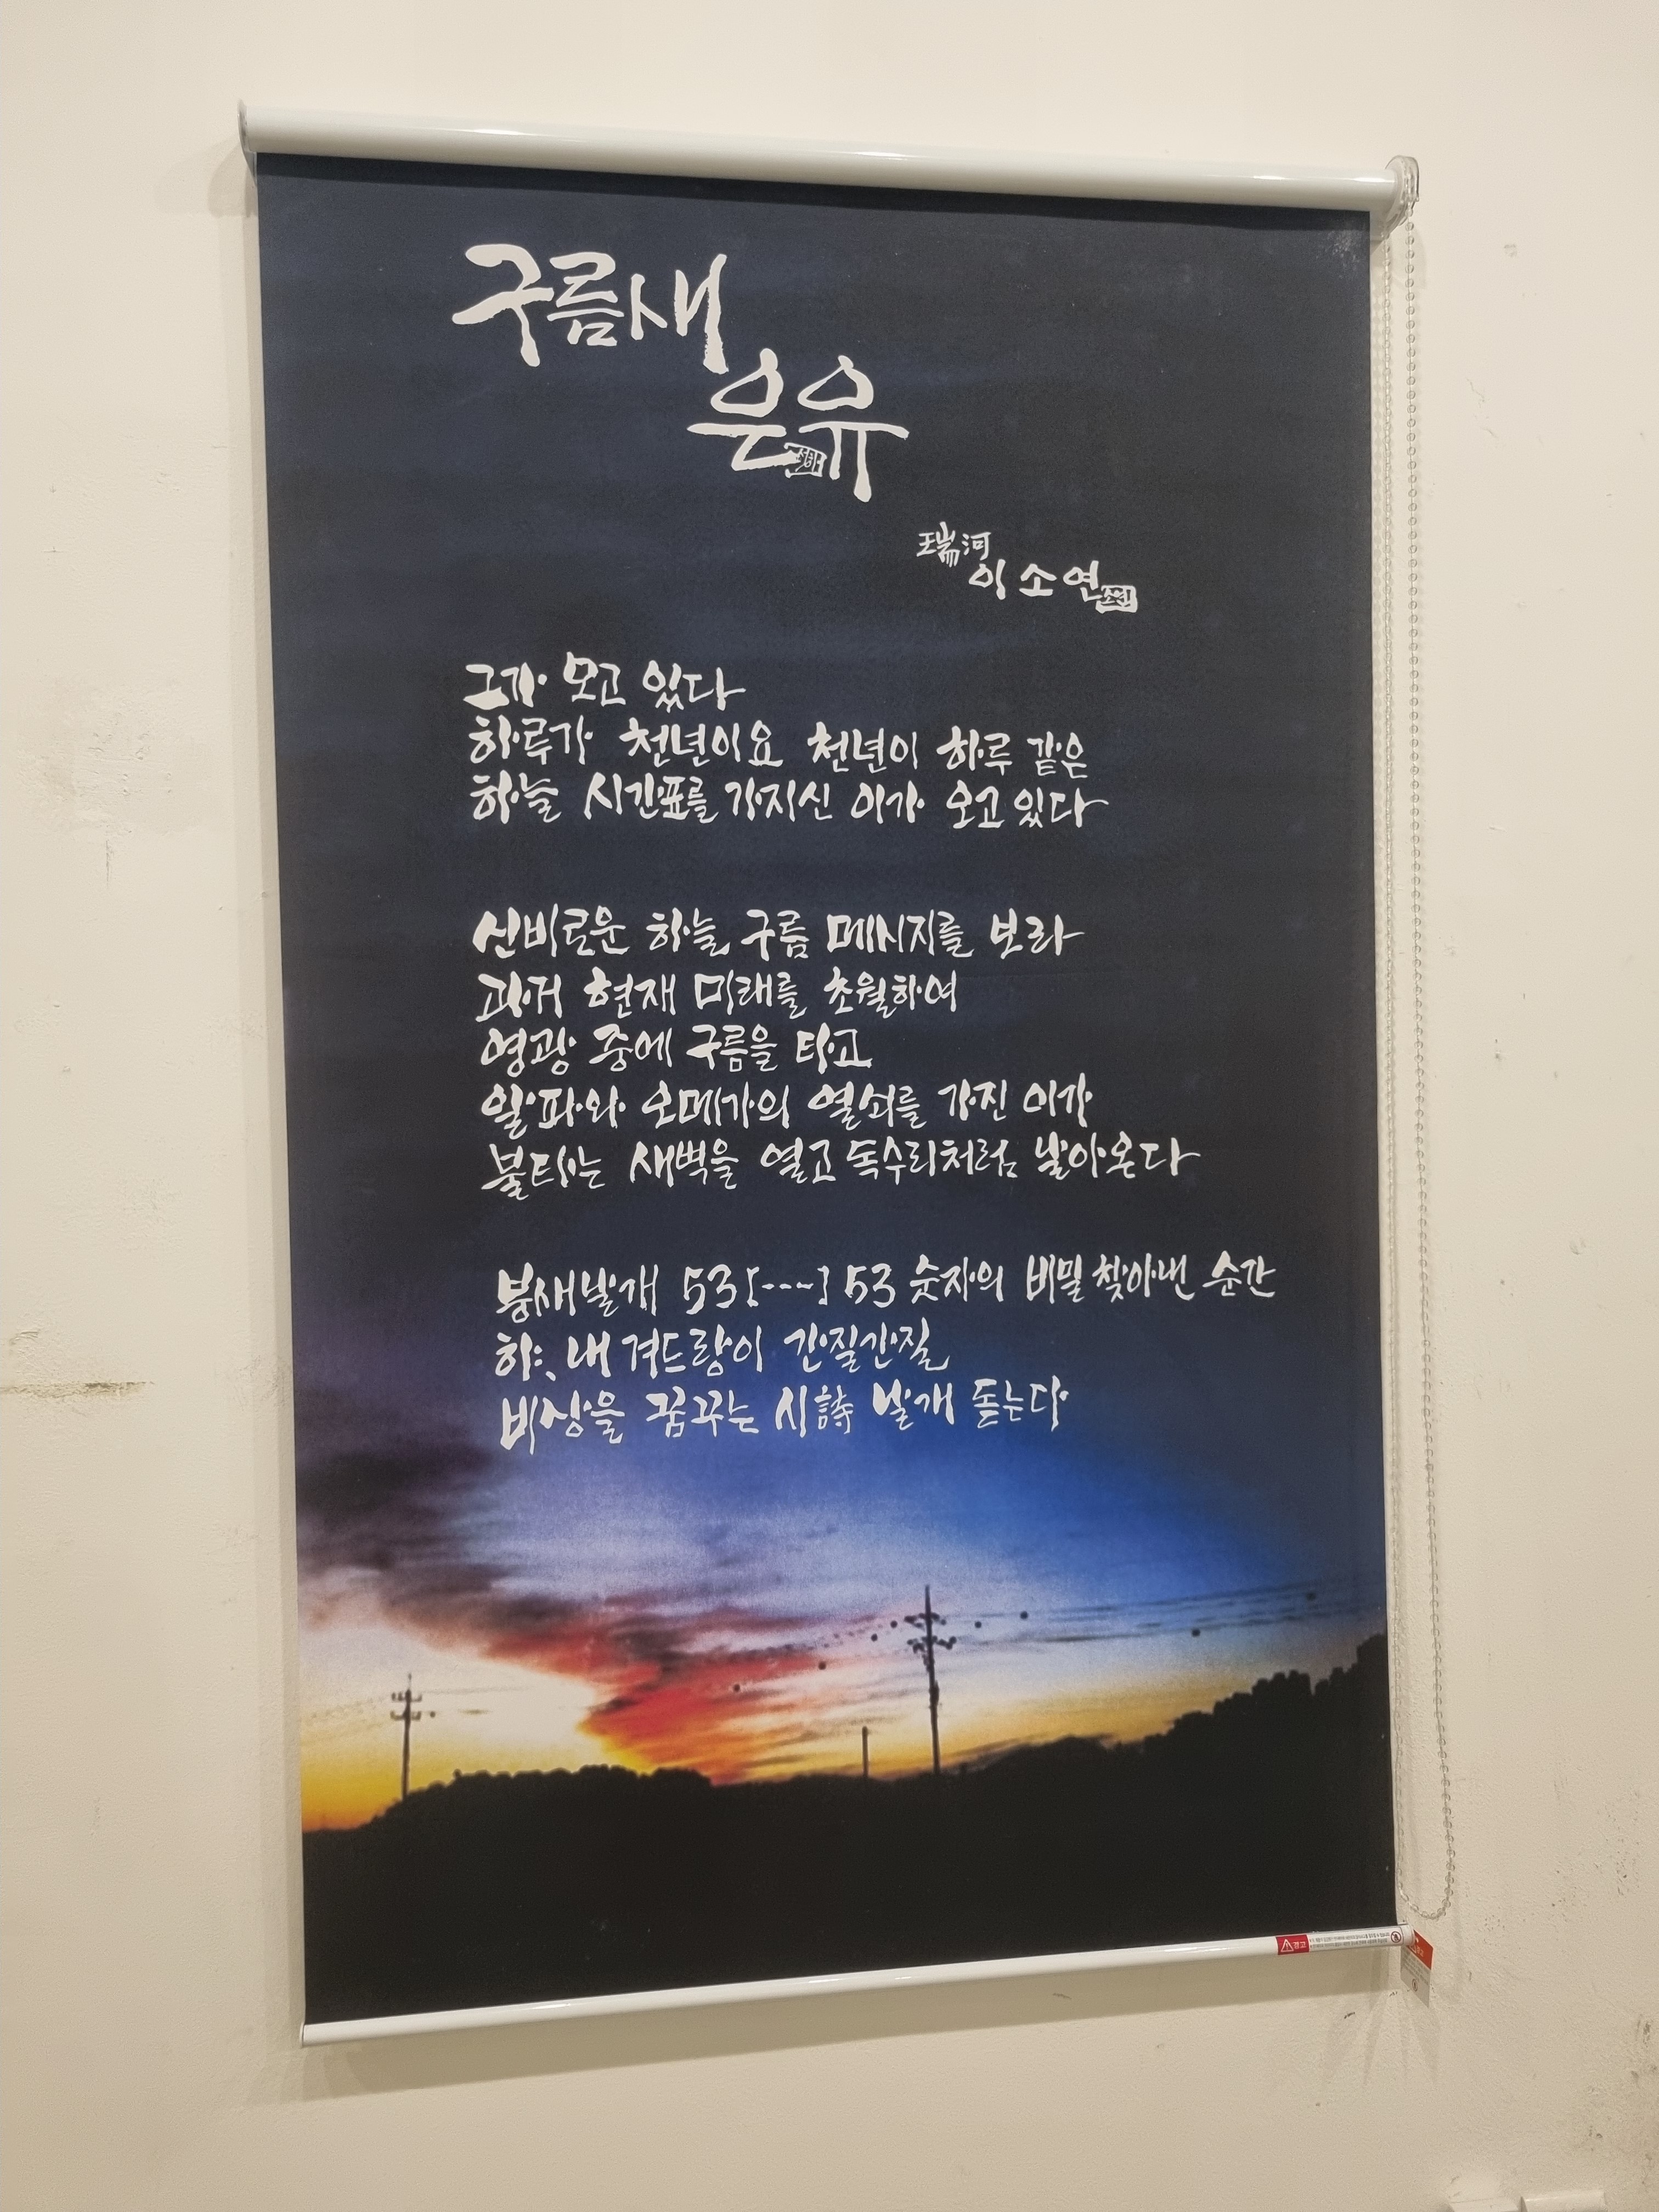 구름새
은유
瑞河
이소연
그가 오고 있다
하루가 천년이요 천년이 하루 같은
하늘 시간표를 가지신 이가 오고 있다
신비로운 하늘 구름 메시지를 보라
과거 현재 미래를 초월하여
영광 중에 구름을 타고
알파와 오메가의 열쇠를 가진 이가
불타는 새벽을 열고 독수리처럼 날아온다
붕새날개 53[----]53 숫자의 비밀 찾아낸 순간
하:、내 겨드랑이 간질간질
비상을 꿈꾸는 시詩 날개 돋는다
경고